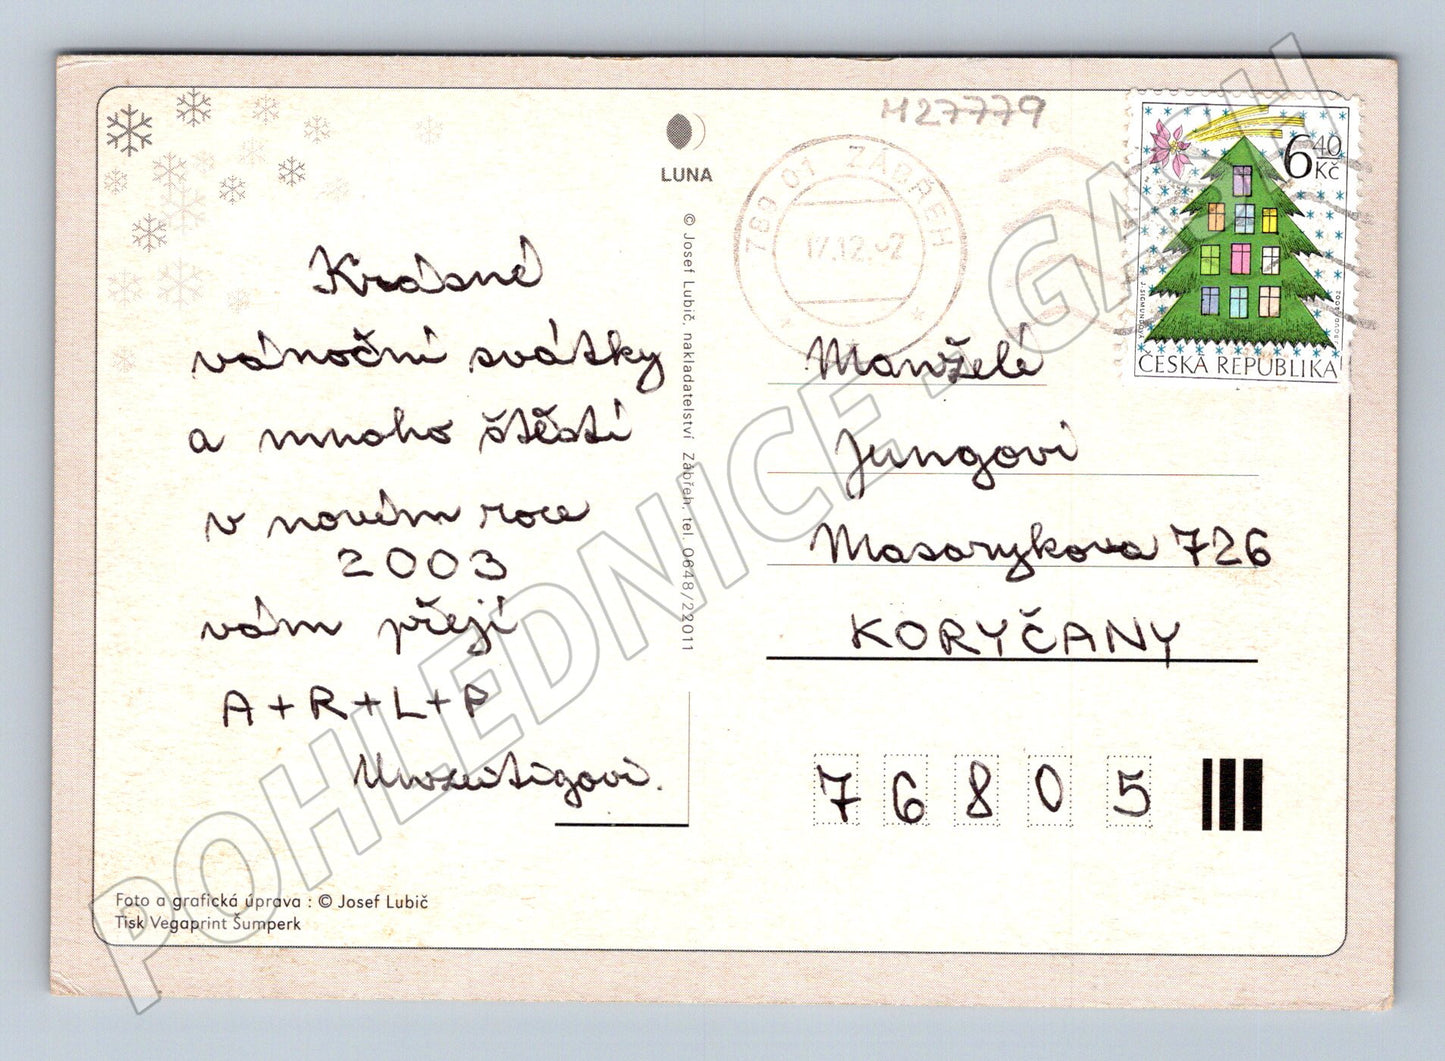 M27779
LUNA
789 01 ZÁBŘEH
17.12.02
6 40 Kč
J. SIGMUNDOVÁ
B. ŠNEIDER
ČESKÁ REPUBLIKA
Krásné
vánoční svátky
a mnoho štěstí
v novém roce
2003
vám přejí
A+R+L+P
© Josef Lubič, nakladatelství Zábřeh, tel. 0648/22011
Manželé
Jungovi
Masarykova 726
KORYČANY
76805
Foto a grafická úprava : © Josef Lubič
Tisk Vegaprint Šumperk
POHLEDNICE - GASH